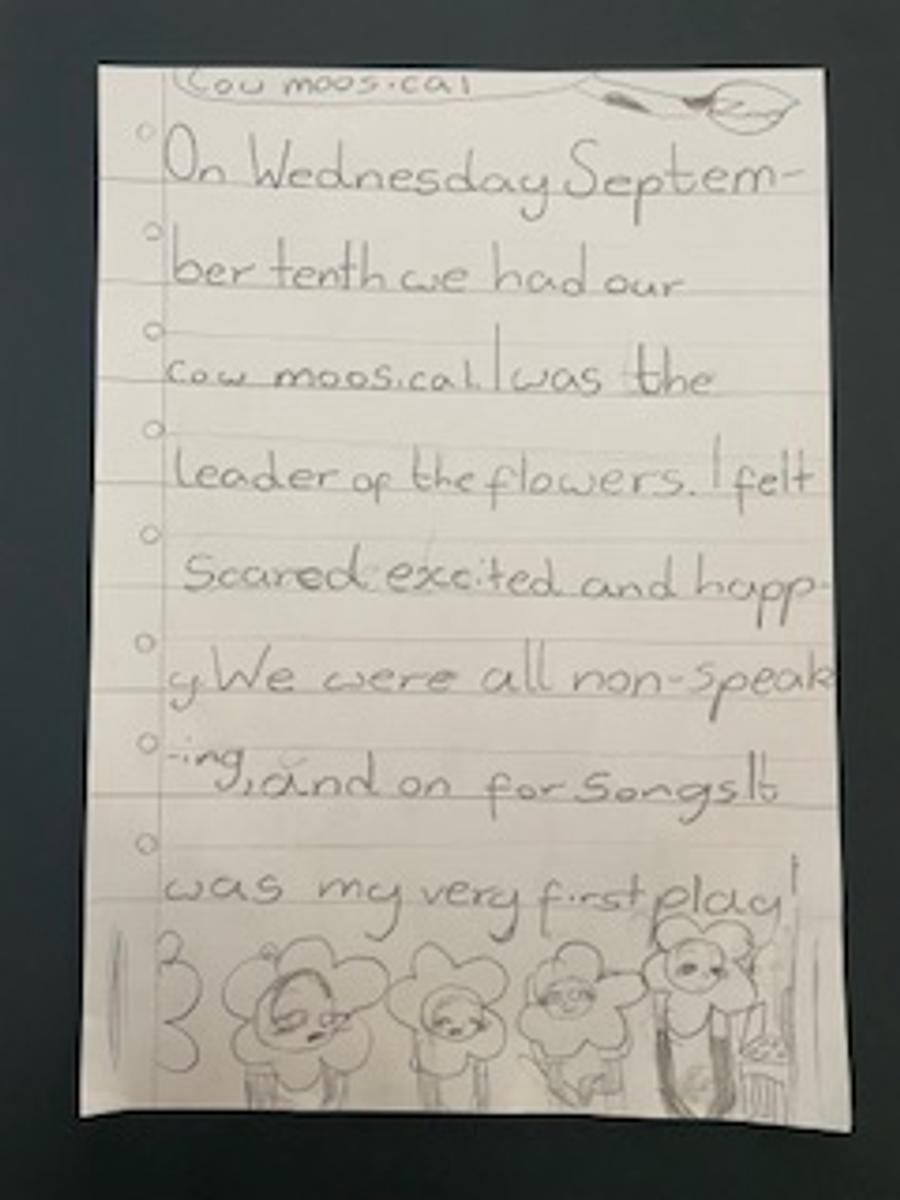 Cow moos.cal
On Wednesday Septem-
ber tenth we had our
cow moos.cal. I was the
leader of the flowers. I felt
Scared excited and happ-
y. We were all non-speak
-ing, and on for songs It
was my very first play!